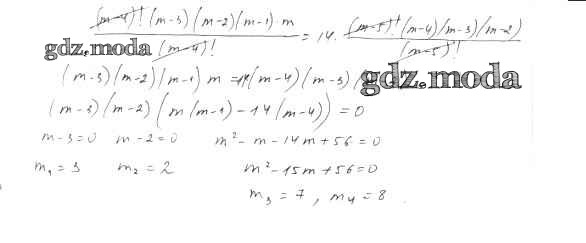 (m-4)! (m-3)(m-2)(m-1)·m / (m-4)! = 14· (m-5)! (m-4)(m-3)(m-2) / (m-5)!
gdz.moda
(m-3)(m-2)(m-1) m = 14(m-4)(m-3)
gdz.moda
(m-3)(m-2)(m(m-1)-14(m-4)) = 0
m-3=0 m-2=0 m²-m-14m+56=0
m₁=3 m₂=2 m²-15m+56=0
m₃=7, m₄=8